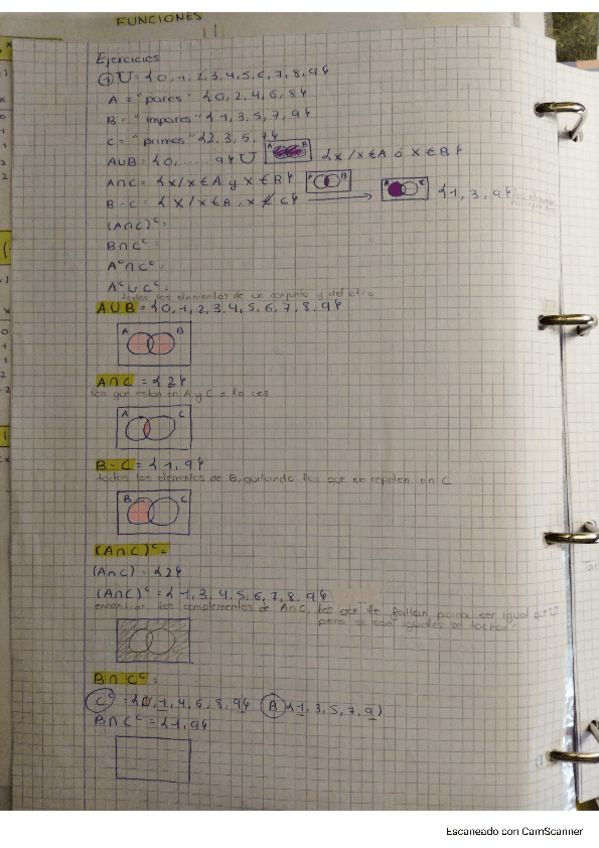 FUNCIONES
Ejercicios
① U = {0, 1, 2, 3, 4, 5, 6, 7, 8, 9}
A = "pares" {0, 2, 4, 6, 8}
B = "impares" {1, 3, 5, 7, 9}
C = "primos" {2, 3, 5, 7}
A∪B = {0, ... 9} U A B {x/x∈A ó x∈B}
A∩C = {x/x∈A y x∈B} A B
B-C = {x/x∈B, x∉C} → {1, 3, 9}
(A∩C)ᶜ =
B∩Cᶜ =
Aᶜ∩Cᶜ =
Aᶜ∪Cᶜ =
Todos los elementos de un conjunto y del otro
A∪B = {0, 1, 2, 3, 4, 5, 6, 7, 8, 9}
A B
A∩C = {2}
los que están en A y C a la vez
A C
B-C = {1, 9}
todos los elementos de B, quitando los que se repiten en C
B C
(A∩C)ᶜ =
(A∩C) = {2}
(A∩C)ᶜ = {1, 3, 4, 5, 6, 7, 8, 9}
encontrar los complementos de A∩C, los que le faltan para ser igual que U
pero si son iguales se
B∩Cᶜ =
Cᶜ = {0, 1, 4, 6, 8, 9} B {1, 3, 5, 7, 9}
B∩Cᶜ = {1, 9}
Escaneado con CamScanner